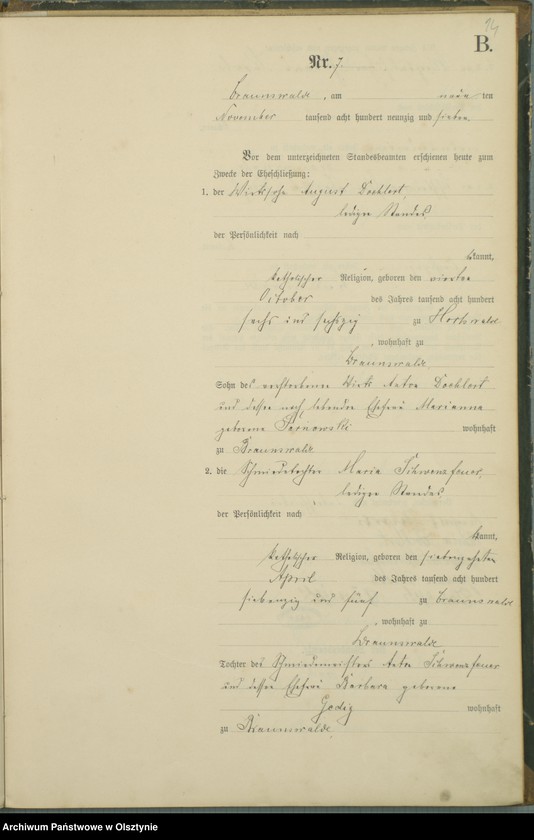 14
B.
Nr. 7.
Braunswalde, am neun ten
November tausend acht hundert neunzig und sieben
Vor dem unterzeichneten Standesbeamten erschienen heute zum
Zwecke der Eheschließung:
1. der August
ledigen Standes,
der Persönlichkeit nach
kannt,
katholischer Religion, geboren den vierten
October des Jahres tausend acht hundert
sechs und sechszig zu
, wohnhaft zu
Braunswalde,
Sohn des verstorbenen Wirth
und dessen noch lebenden Ehefrau Marianna
geborene wohnhaft
zu Braunswalde
2. die Schmiedetochter Maria
ledigen Standes,
der Persönlichkeit nach
kannt,
katholischer Religion, geboren den siebenzehnten
April des Jahres tausend acht hundert
siebenzig und fünf zu Braunswalde
, wohnhaft zu
Braunswalde
Tochter des Schmiedemeisters
und dessen Ehefrau Barbara geborene
wohnhaft
zu Braunswalde,
Archiwum Państwowe w Olsztynie